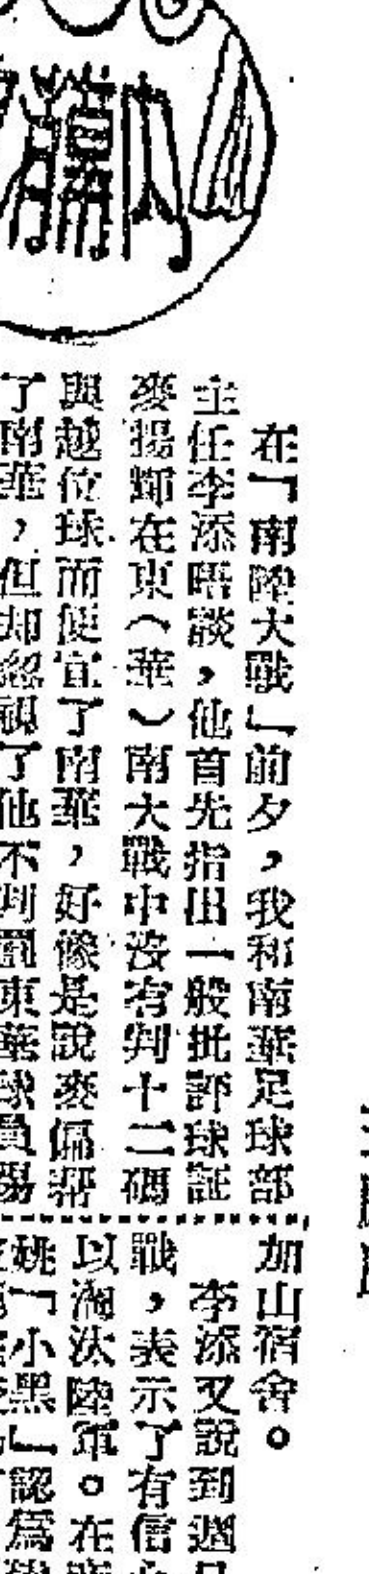 內
在「南陸大戰」前夕，我和南華足球部
主任李添晤談，他首先指出一般批評球証
麥揚輝在東（華）南大戰中沒有判十二碼
與越位球而便宜了南華，好像是說麥偏幫
了南華，但却忽視了他不判罰東華球員楊
加山宿舍。
李添又說到週
戰，表示了有信心
以淘汰陸軍。在
姚「小黑」認爲